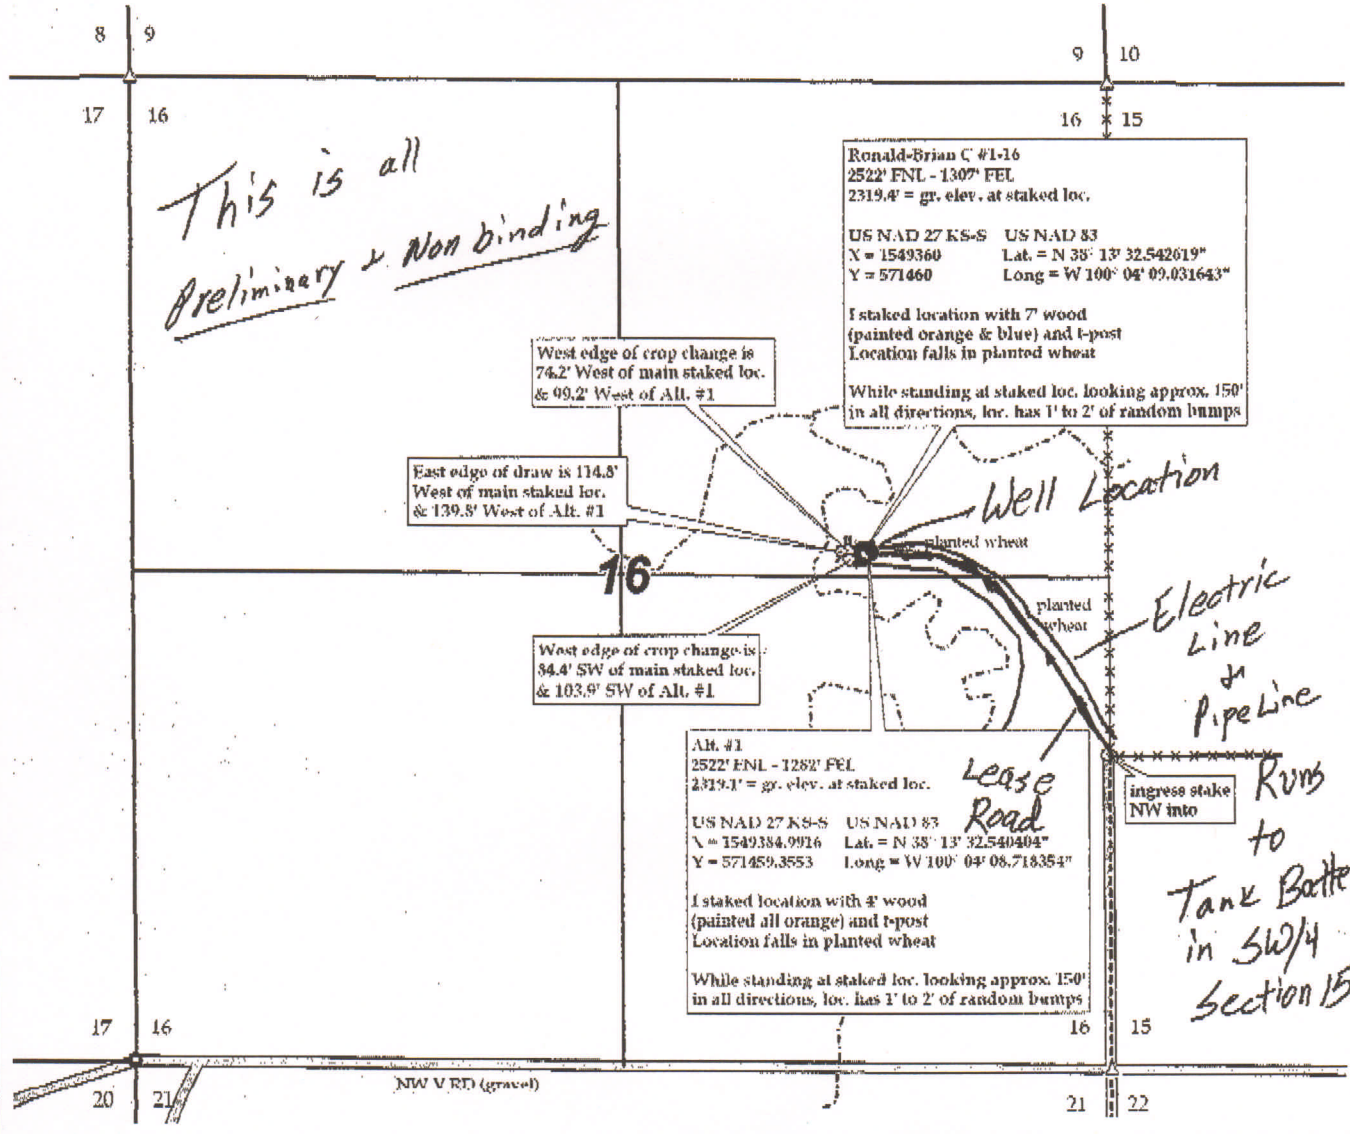 8 9
9 10
17 16
16 15
This is all
Preliminary & Non binding
Ronald-Brian C #1-16
2522' FNL - 1307' FEL
2319.4' = gr. elev. at staked loc.
US NAD 27 KS-S US NAD 83
X = 1549360 Lat. = N 38° 13' 32.542619"
Y = 571460 Long = W 100° 04' 09.031643"
I staked location with 7' wood
(painted orange & blue) and t-post
Location falls in planted wheat
While standing at staked loc. looking approx. 150'
in all directions, loc. has 1' to 2' of random bumps
West edge of crop change is
74.2' West of main staked loc.
& 99.2' West of Alt. #1
East edge of draw is 114.8'
West of main staked loc.
& 139.8' West of Alt. #1
Well Location
planted wheat
16
planted
wheat
Electric
Line
&
Pipe Line
Runs
to
Tank Batte
in SW/4
Section 15
West edge of crop change is
84.4' SW of main staked loc.
& 103.9' SW of Alt. #1
Alt. #1
2522' FNL - 1282' FEL
2319.1' = gr. elev. at staked loc.
US NAD 27 KS-S US NAD 83
X = 1549384.9916 Lat. = N 38° 13' 32.540404"
Y = 571459.3553 Long = W 100° 04' 08.718354"
I staked location with 4' wood
(painted all orange) and t-post
Location falls in planted wheat
While standing at staked loc. looking approx. 150'
in all directions, loc. has 1' to 2' of random bumps
Lease
Road
ingress stake
NW into
17 16
16 15
NW V RD (gravel)
20 21
21 22